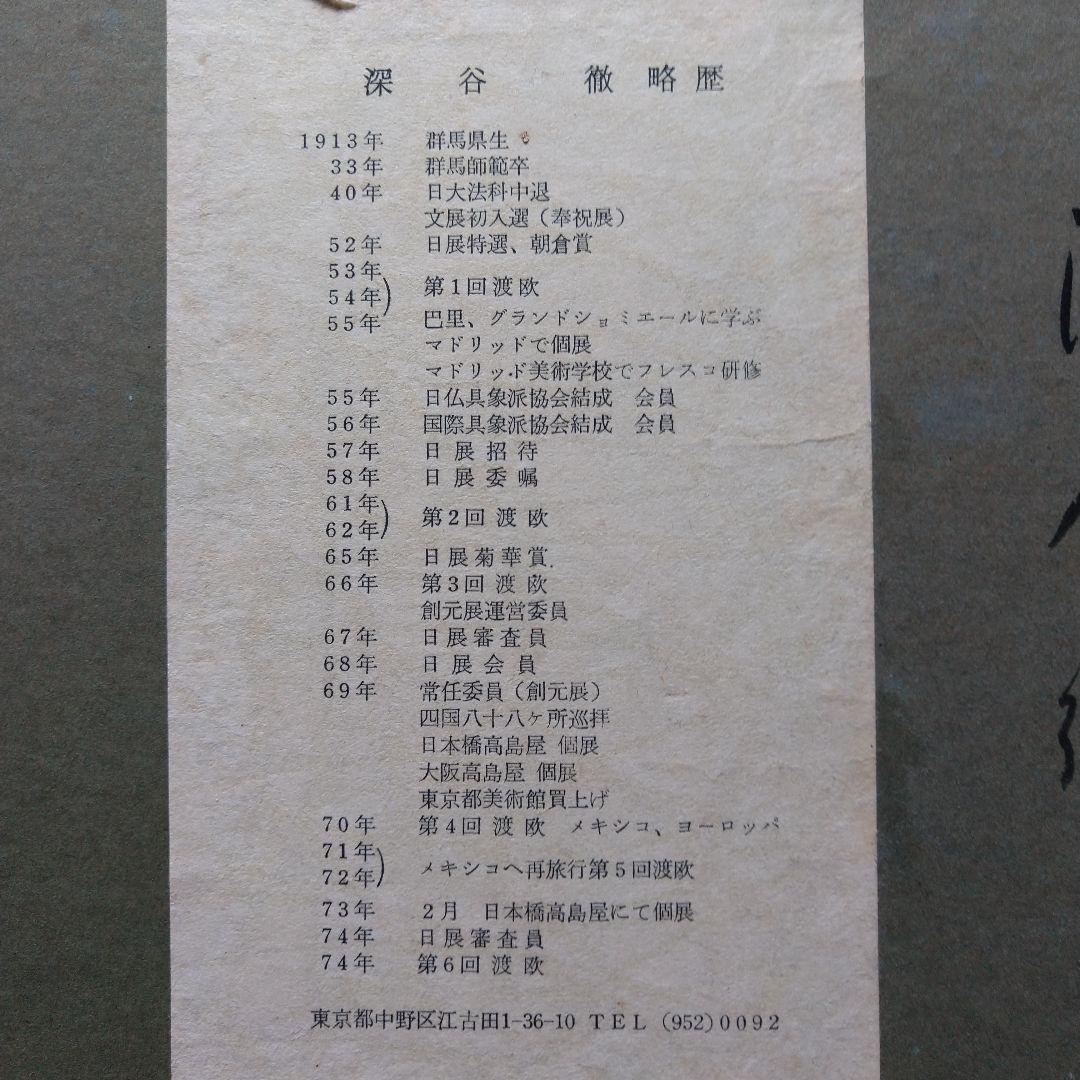 深谷 徹 略歴
1913年 群馬県生
33年 群馬師範卒
40年 日大法科中退
文展初入選(奉祝展)
52年 日展特選、朝倉賞
53年
54年) 第1回渡欧
55年 巴里、グランドショミエールに学ぶ
マドリッドで個展
マドリッド美術学校でフレスコ研修
55年 日仏具象派協会結成 会員
56年 国際具象派協会結成 会員
57年 日展招待
58年 日展委嘱
61年
62年) 第2回渡欧
65年 日展菊華賞.
66年 第3回渡欧
創元展運営委員
67年 日展審査員
68年 日展会員
69年 常任委員(創元展)
四国八十八ヶ所巡拝
日本橋高島屋 個展
大阪高島屋 個展
東京都美術館買上げ
70年 第4回渡欧 メキシコ、ヨーロッパ
71年
72年) メキシコへ再旅行第5回渡欧
73年 2月 日本橋高島屋にて個展
74年 日展審査員
74年 第6回渡欧
東京都中野区江古田1-36-10 TEL (952)0092